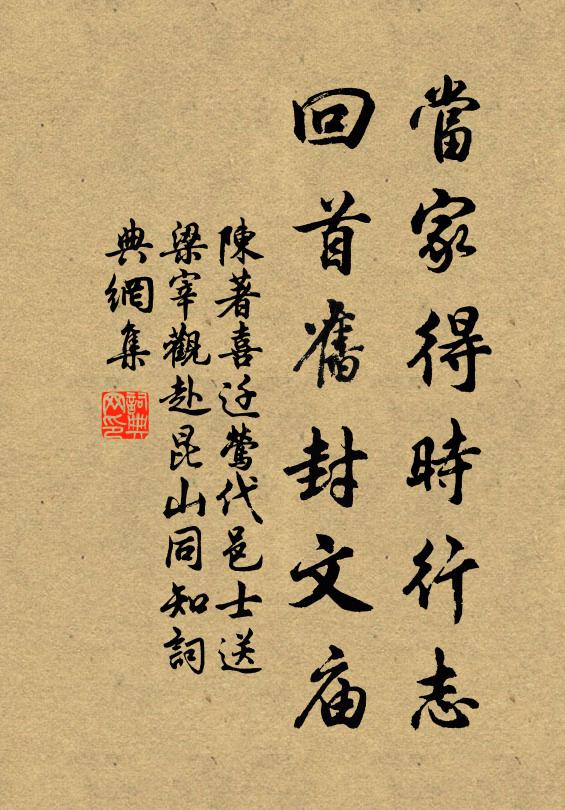 當家得時行志
回首舊封文庙
陳著喜迁鶯代邑士送
梁宰觀赴昆山同知詞
典網集
詞典
网印